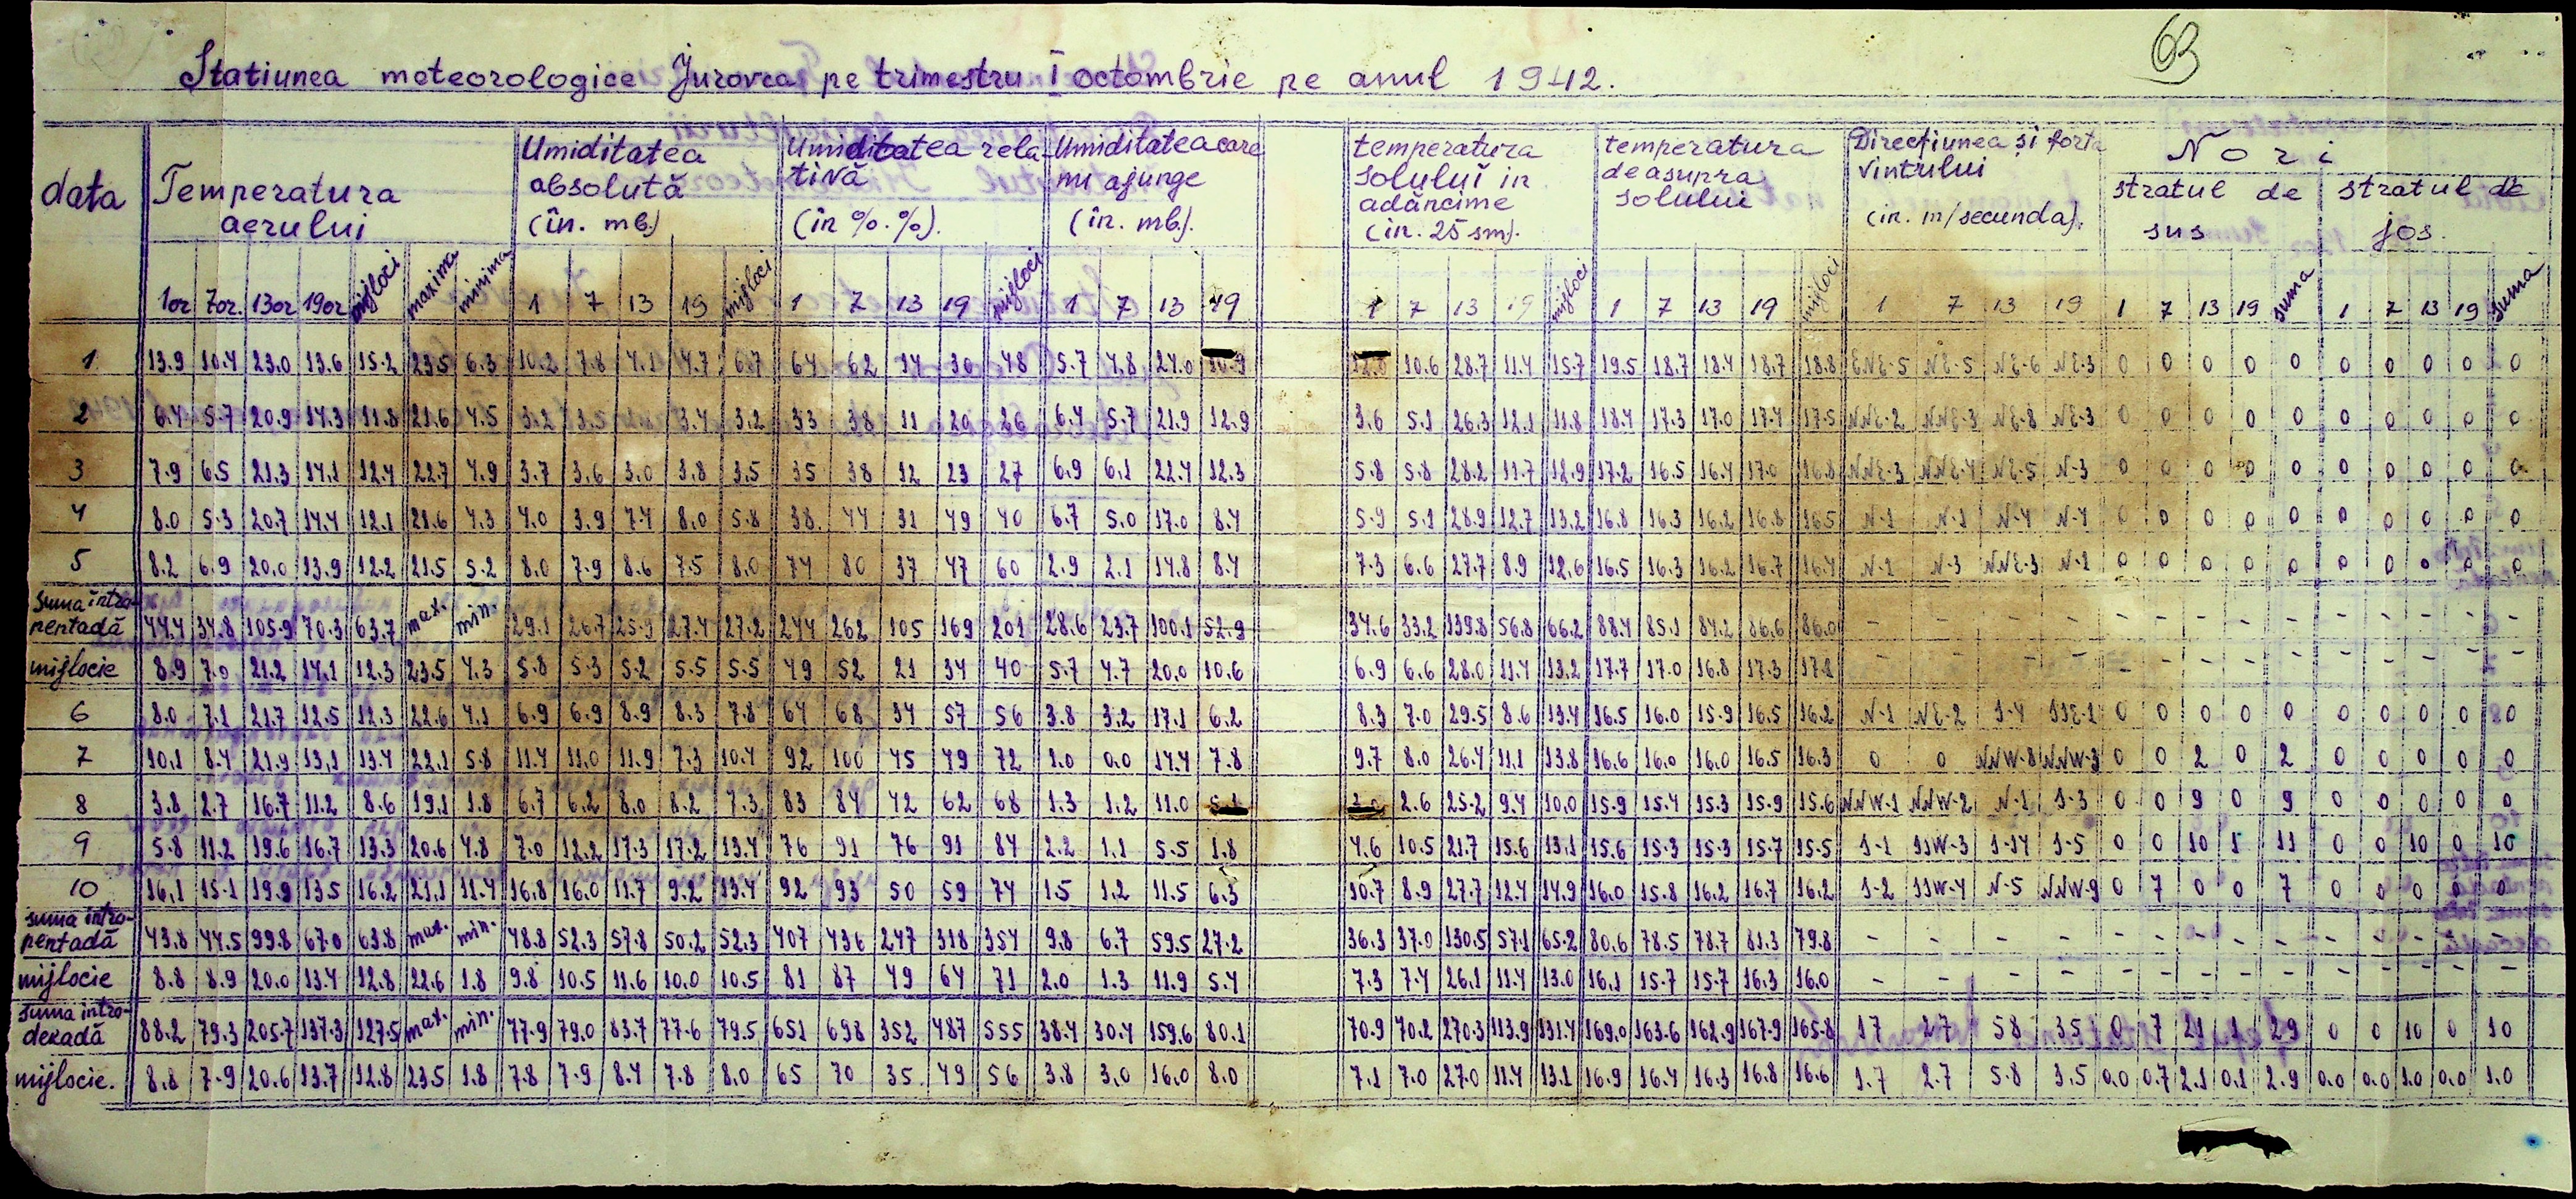 63
Statiunea meteorologice Jurovca pe trimestru I octombrie pe anul 1942.
data Temperatura aerului Umiditatea absolută (în. mb.) Umiditatea relativă (în %.%). Umiditatea care nu ajunge (în. mb.). temperatura solului in adâncime (in. 25 sm). temperatura deasupra solului Direcțiunea și forta vintului (in. m/secunda). Nori stratul de sus stratul de jos
1or 7or. 13or 19or mijloci maxima minima 1 7 13 19 mijloci 1 7 13 19 mijloci 1 7 13 19 1 7 13 19 mijloci 1 7 13 19 mijloci 1 7 13 19 1 7 13 19 suma 1 7 13 19 suma
1 13.9 10.4 23.0 13.6 15.2 23.5 6.3 10.2 7.8 4.1 4.7 6.7 64 62 14 30 48 5.7 4.8 24.0 10.9 12.0 10.6 28.7 11.4 15.7 19.5 18.7 18.4 18.7 18.8 ENE-5 NE-5 NE-6 NE-3 0 0 0 0 0 0 0 0 0 0
2 6.4 5.7 20.9 14.3 11.8 21.6 4.5 3.2 3.5 3.4 3.2 33 38 11 20 26 6.4 5.7 21.9 12.9 3.6 5.1 26.3 12.1 11.8 18.4 17.3 17.0 17.4 17.5 NNE-2 NNE-3 NE-8 NE-3 0 0 0 0 0 0 0 0 0 0
3 7.9 6.5 21.3 14.1 12.4 22.7 4.9 3.7 3.6 3.0 3.8 3.5 35 38 12 23 27 6.9 6.1 22.4 12.3 5.8 5.8 28.2 11.7 12.9 17.2 16.5 16.4 17.0 16.8 NNE-3 NNE-4 NE-5 N-3 0 0 0 0 0 0 0 0 0 0
4 8.0 5.3 20.7 14.4 12.1 21.6 4.3 4.0 3.9 7.4 8.0 5.8 38. 44 31 49 40 6.7 5.0 17.0 8.4 5.9 5.1 28.9 12.7 13.2 16.8 16.3 16.2 16.8 16.5 N-1 N-1 N-4 N-4 0 0 0 0 0 0 0 0 0 0
5 8.2 6.9 20.0 13.9 12.2 21.5 5.2 8.0 7.9 8.6 7.5 8.0 74 80 37 47 60 2.9 2.1 14.8 8.4 7.3 6.6 27.7 8.9 12.6 16.5 16.3 16.2 16.7 16.4 N-1 N-3 NNE-3 N-1 0 0 0 0 0 0 0 0 0 0
suma intro-pentadă 44.4 34.8 105.9 70.3 63.7 max. min. 29.1 26.7 25.9 27.4 27.2 244 262 105 169 201 28.6 23.7 100.1 52.9 34.6 33.2 139.8 56.8 66.2 88.4 85.1 84.2 86.6 86.0 - - - - - - - - - - - - - -
mijlocie 8.9 7.0 21.2 14.1 12.3 23.5 4.3 5.8 5.3 5.2 5.5 5.5 49 52 21 34 40 5.7 4.7 20.0 10.6 6.9 6.6 28.0 11.4 13.2 17.7 17.0 16.8 17.3 17.2 - - - - - - - - - - - - - -
6 8.0 7.1 21.7 12.5 12.3 22.6 4.1 6.9 6.9 8.9 8.3 7.8 64 68 34 57 56 3.8 3.2 17.1 6.2 8.3 7.0 29.5 8.6 13.4 16.5 16.0 15.9 16.5 16.2 N-1 NE-2 S-4 SSE-1 0 0 0 0 0 0 0 0 0 0
7 10.1 8.4 21.9 13.1 13.4 22.1 5.8 11.4 11.0 11.9 7.3 10.4 92 100 45 49 72 1.0 0.0 14.4 7.8 9.7 8.0 26.4 11.1 13.8 16.6 16.0 16.0 16.5 16.3 0 0 NNW-8 NNW-3 0 0 2 0 2 0 0 0 0 0
8 3.8 2.7 16.7 11.2 8.6 19.1 1.8 6.7 6.2 8.0 8.2 7.3 83 84 42 62 68 1.3 1.2 11.0 5.1 2.6 25.2 9.4 10.0 15.9 15.4 15.3 15.9 15.6 NNW-1 NNW-2 N-1 S-3 0 0 9 0 9 0 0 0 0 0
9 5.8 11.2 19.6 16.7 13.3 20.6 4.8 7.0 12.2 17.3 17.2 13.4 76 91 76 91 84 2.2 1.1 5.5 1.8 4.6 10.5 21.7 15.6 13.1 15.6 15.3 15.3 15.7 15.5 S-1 SSW-3 S-14 S-5 0 0 10 1 11 0 0 10 0 10
10 16.1 15.1 19.9 13.5 16.2 21.1 11.4 16.8 16.0 11.7 9.2 13.4 92 93 50 59 74 1.5 1.2 11.5 6.3 10.7 8.9 27.7 12.4 14.9 16.0 15.8 16.2 16.7 16.2 S-2 SSW-4 N-5 NNW-9 0 7 0 0 7 0 0 0 0 0
suma intro-pentadă 43.8 44.5 99.8 67.0 63.8 max. min. 48.8 52.3 57.8 50.2 52.3 407 436 247 318 354 9.8 6.7 59.5 27.2 36.3 37.0 130.5 57.1 65.2 80.6 78.5 78.7 81.3 79.8 - - - - - - - - - - - - - -
mijlocie 8.8 8.9 20.0 13.4 12.8 22.6 1.8 9.8 10.5 11.6 10.0 10.5 81 87 49 64 71 2.0 1.3 11.9 5.4 7.3 7.4 26.1 11.4 13.0 16.1 15.7 15.7 16.3 16.0 - - - - - - - - - - - - - -
suma intro-dekadă 88.2 79.3 205.7 137.3 127.5 max. min. 77.9 79.0 83.7 77.6 79.5 651 698 352 487 555 38.4 30.4 159.6 80.1 70.9 70.2 270.3 113.9 131.4 169.0 163.6 162.9 167.9 165.8 17 27 58 35 0 7 21 1 29 0 0 10 0 10
mijlocie. 8.8 7.9 20.6 13.7 12.8 23.5 1.8 7.8 7.9 8.4 7.8 8.0 65 70 35 49 56 3.8 3.0 16.0 8.0 7.1 7.0 27.0 11.4 13.1 16.9 16.4 16.3 16.8 16.6 1.7 2.7 5.8 3.5 0.0 0.7 2.1 0.1 2.9 0.0 0.0 1.0 0.0 1.0